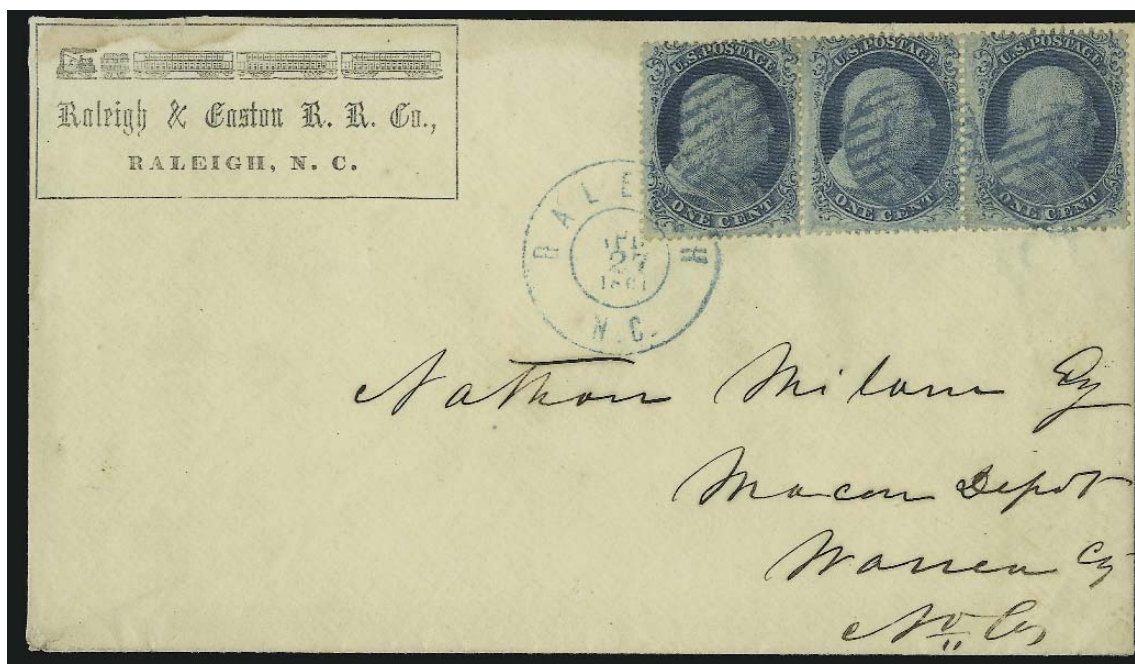 Raleigh & Gaston R. R. Co.,
RALEIGH, N. C.
U.S. POSTAGE
ONE CENT
U.S. POSTAGE
ONE CENT
U.S. POSTAGE
ONE CENT
RALEIGH
27
1861
N.C.
Nathan Milam Esq
Macon Depot
Warren Cy
No Ca